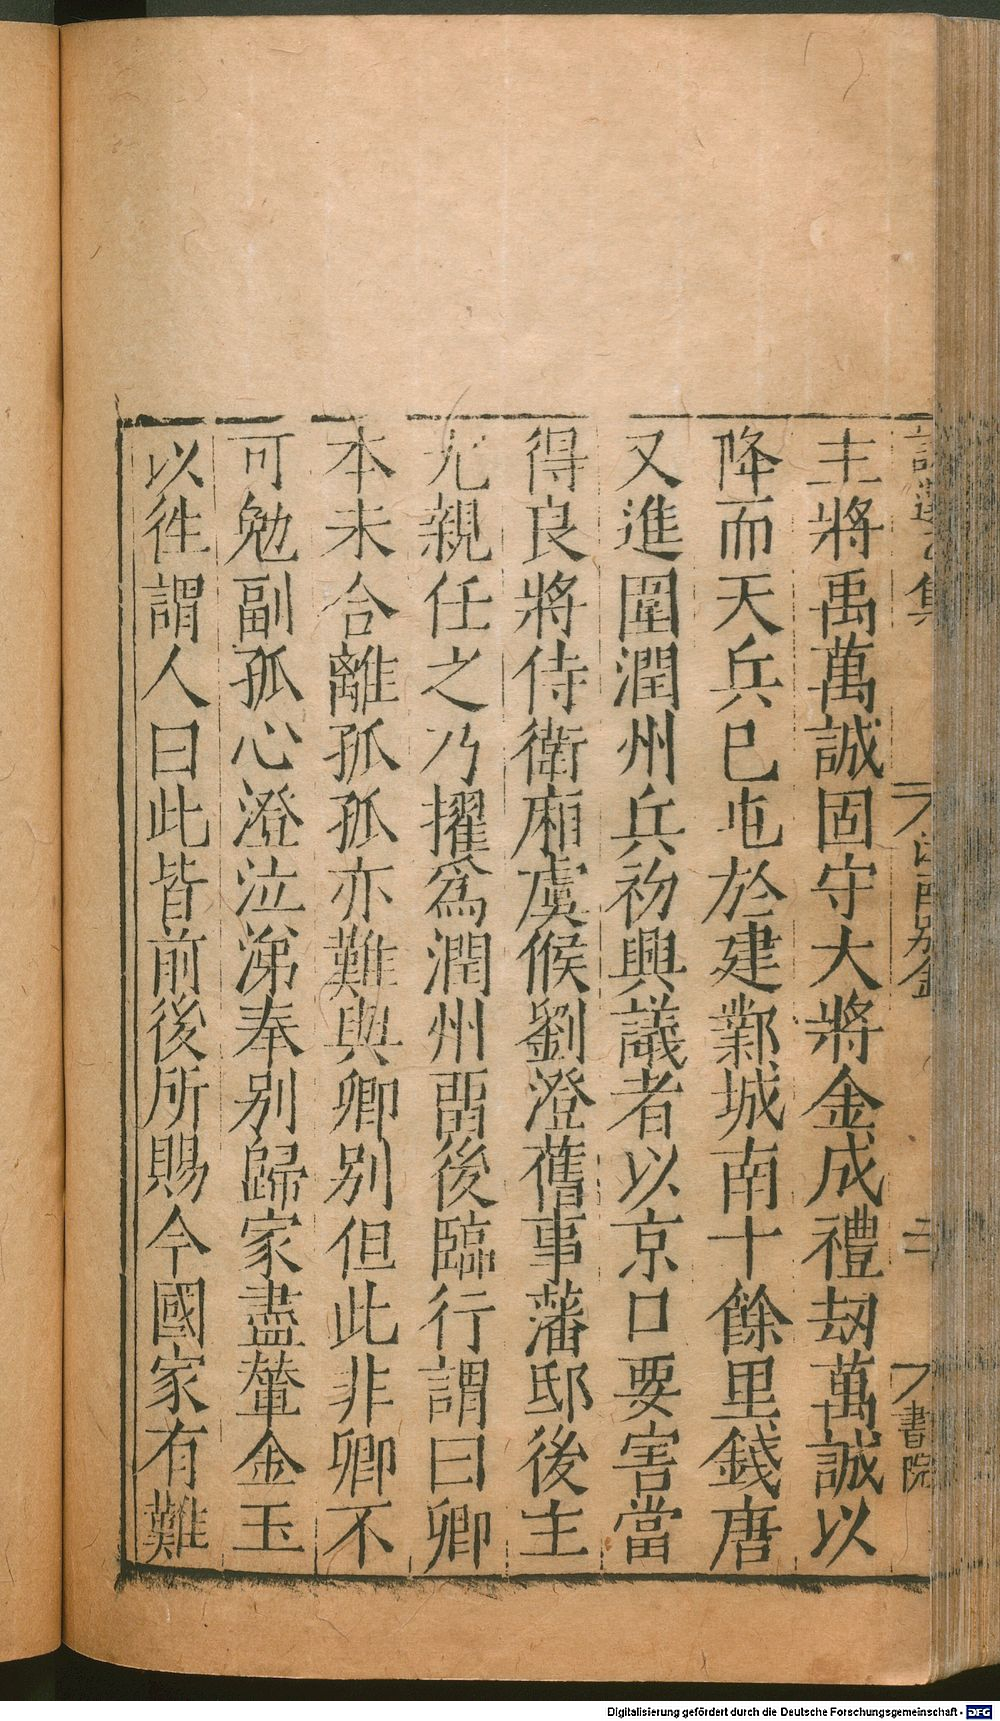 主將禹萬誠固守大將金成禮刼萬誠以
降而天兵已屯於建鄴城南十餘里錢唐
又進圍潤州兵初興議者以京口要害當
得良將侍衛廂虞候劉澄舊事藩邸後主
尤親任之乃擢爲潤州畱後臨行謂曰卿
本未合離孤孤亦難與卿别但此非卿不
可勉副孤心澄泣涕奉别歸家盡輦金玉
以徃謂人曰此皆前後所賜今國家有難
集
二
書院
Digitalisierung gefördert durch die Deutsche Forschungsgemeinschaft - DFG